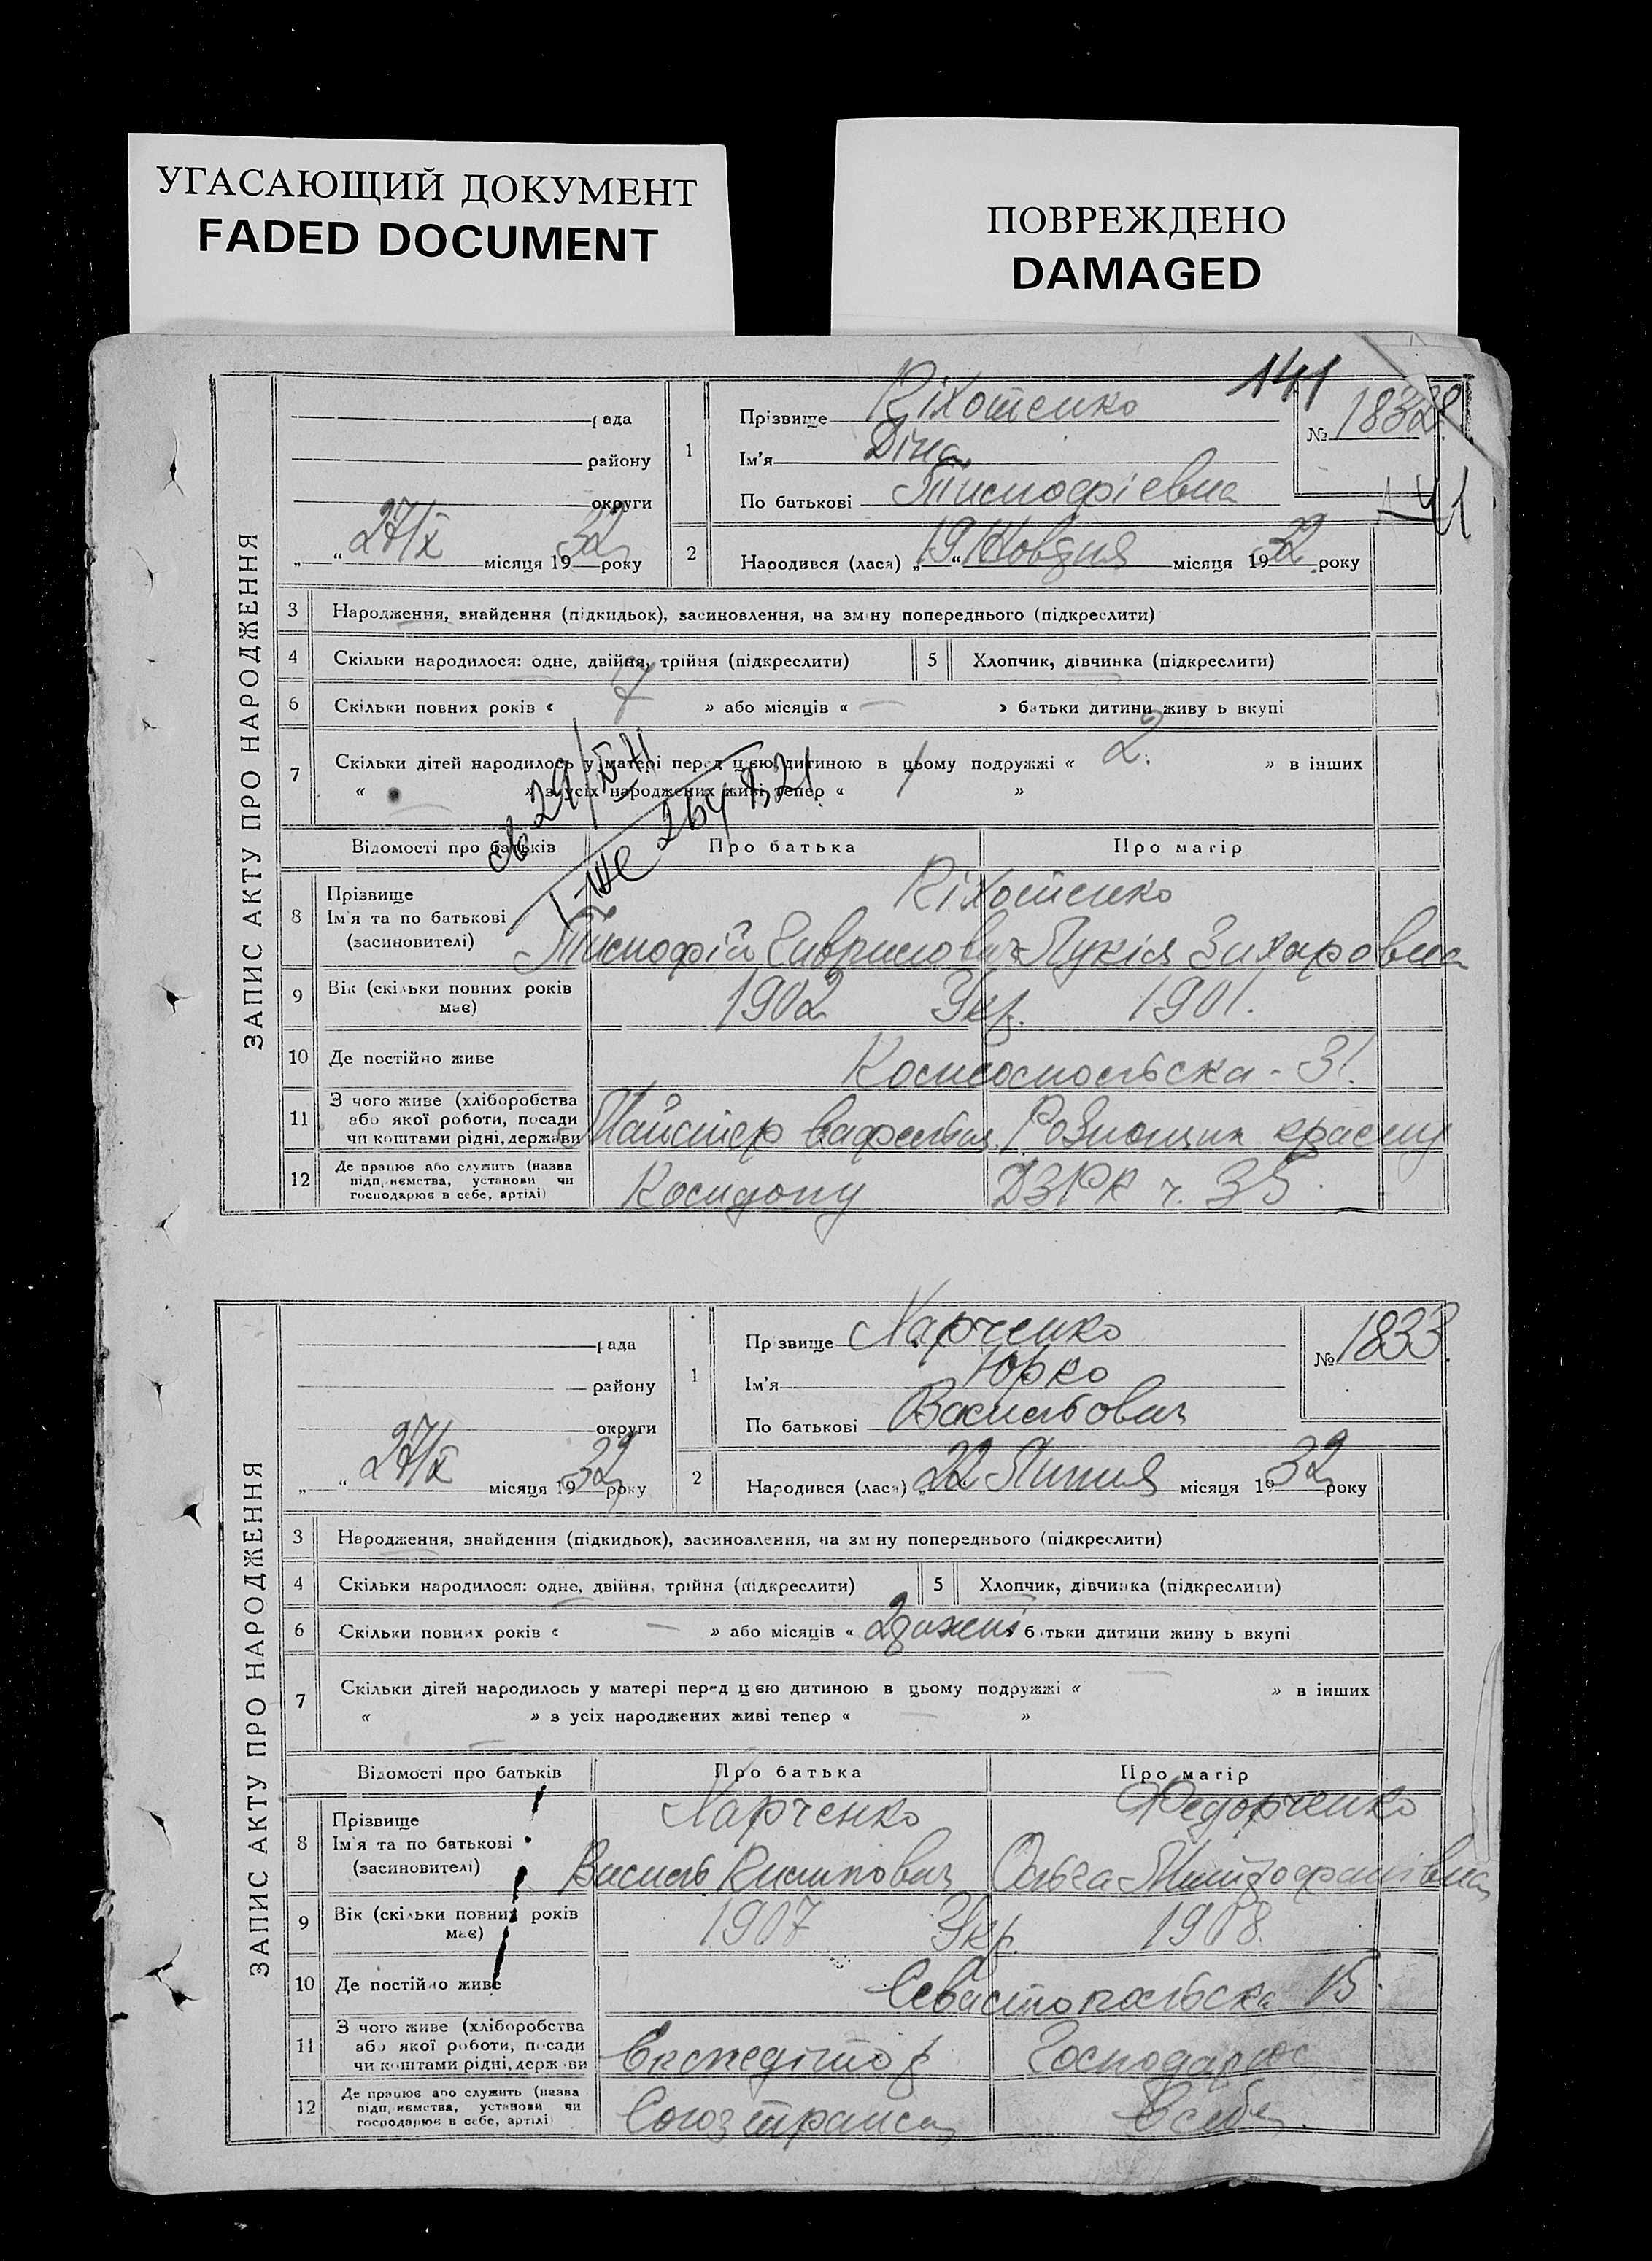 УГАСАЮЩИЙ ДОКУМЕНТ
FADED DOCUMENT
ПОВРЕЖДЕНО
DAMAGED
141
ЗАПИС АКТУ ПРО НАРОДЖЕННЯ
рада
району
округи
„ “ 27/X місяця 1932 року
1 Прізвище Кіхотенко
Ім'я Діна
По батькові Тимофієвна
№ 1832
141
2 Народився (лася) „19“ Жовтня місяця 1932 року
3 Народження, знайдення (підкидьок), засиновлення, на зміну попереднього (підкреслити)
4 Скільки народилося: одне, двійня, трійня (підкреслити)
5 Хлопчик, дівчинка (підкреслити)
6 Скільки повних років « 7 » або місяців « — » батьки дитини живуть вкупі
7 Скільки дітей народилось у матері перед цією дитиною в цьому подружжі « 2. » в інших
« » з усіх народжених живі тепер « 1 »
Відомості про батьків Про батька Про матір
8 Прізвище
Ім'я та по батькові
(засиновителі)
Кіхотенко
Тимофій Гаврилович Лукія Захаровна
9 Вік (скільки повних років має) 1902 Укр. 1901.
10 Де постійно живе Комсомольська - 31.
11 З чого живе (хліборобства
або якої роботи, посади
чи коштами рідні, держави
Майстер вафельн.
12 Де працює або служить (назва
підприємства, установи чи
господарює в себе, артілі)
ДЗРК ч. 35.
ЗАПИС АКТУ ПРО НАРОДЖЕННЯ
рада
району
округи
„ “ 27/X місяця 1932 року
1 Прізвище Харченко
Ім'я Юрко
По батькові Васильович
№ 1833.
2 Народився (лася) „22 Липня місяця 1932 року
3 Народження, знайдення (підкидьок), засиновлення, на зміну попереднього (підкреслити)
4 Скільки народилося: одне, двійня, трійня (підкреслити)
5 Хлопчик, дівчинка (підкреслити)
6 Скільки повних років « — » або місяців « батьки дитини живуть вкупі
7 Скільки дітей народилось у матері перед цією дитиною в цьому подружжі « — » в інших
« » з усіх народжених живі тепер « — »
Відомості про батьків Про батька Про матір
8 Прізвище
Ім'я та по батькові
(засиновителі)
Харченко Федорченко
Василь Кирилович Ольга Митрофанівна
9 Вік (скільки повних років має) 1907 Укр. 1908.
10 Де постійно живе Севастопольська 15.
11 З чого живе (хліборобства
або якої роботи, посади
чи коштами рідні, держави
Експедітор Господарює
12 Де працює або служить (назва
підприємства, установи чи
господарює в себе, артілі)
Союзтранс В себе